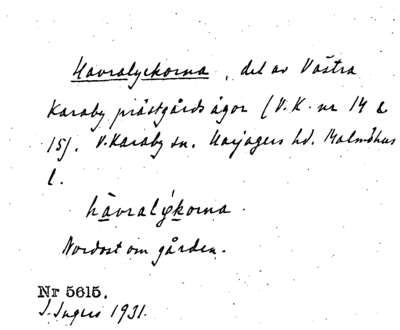 Havralyckorna, del av Västra
Karaby prästgårds ägor (V.K. nr 14 &
15). V.Karaby sn. Harjagers hd. Malmöhus
l.
hàvralỳkorna.
Nordost om gården.
Nr 5615.
I. Ingers 1931.